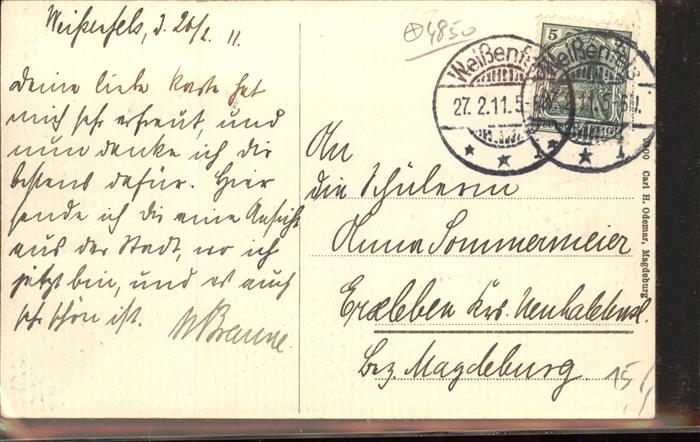 Weißenfels, d. 26/2. 11.
Deine liebe Karte hat
mich sehr erfreut, und
nun danke ich dir
bestens dafür. Hier
sende ich dir eine Ansicht
aus der Stadt, wo ich
jetzt bin, und es auch
sehr schön ist.
4850
Weißenfels
27.2.11.5-6N.
* * 1 *
Weißenfels
27.2.11.5-6N.
* 1
5
An
die Schülerin
Anna Sommermeier
Erxleben Krs. Neuhaldensl.
Bez. Magdeburg
15/
Carl H. Odemar, Magdeburg